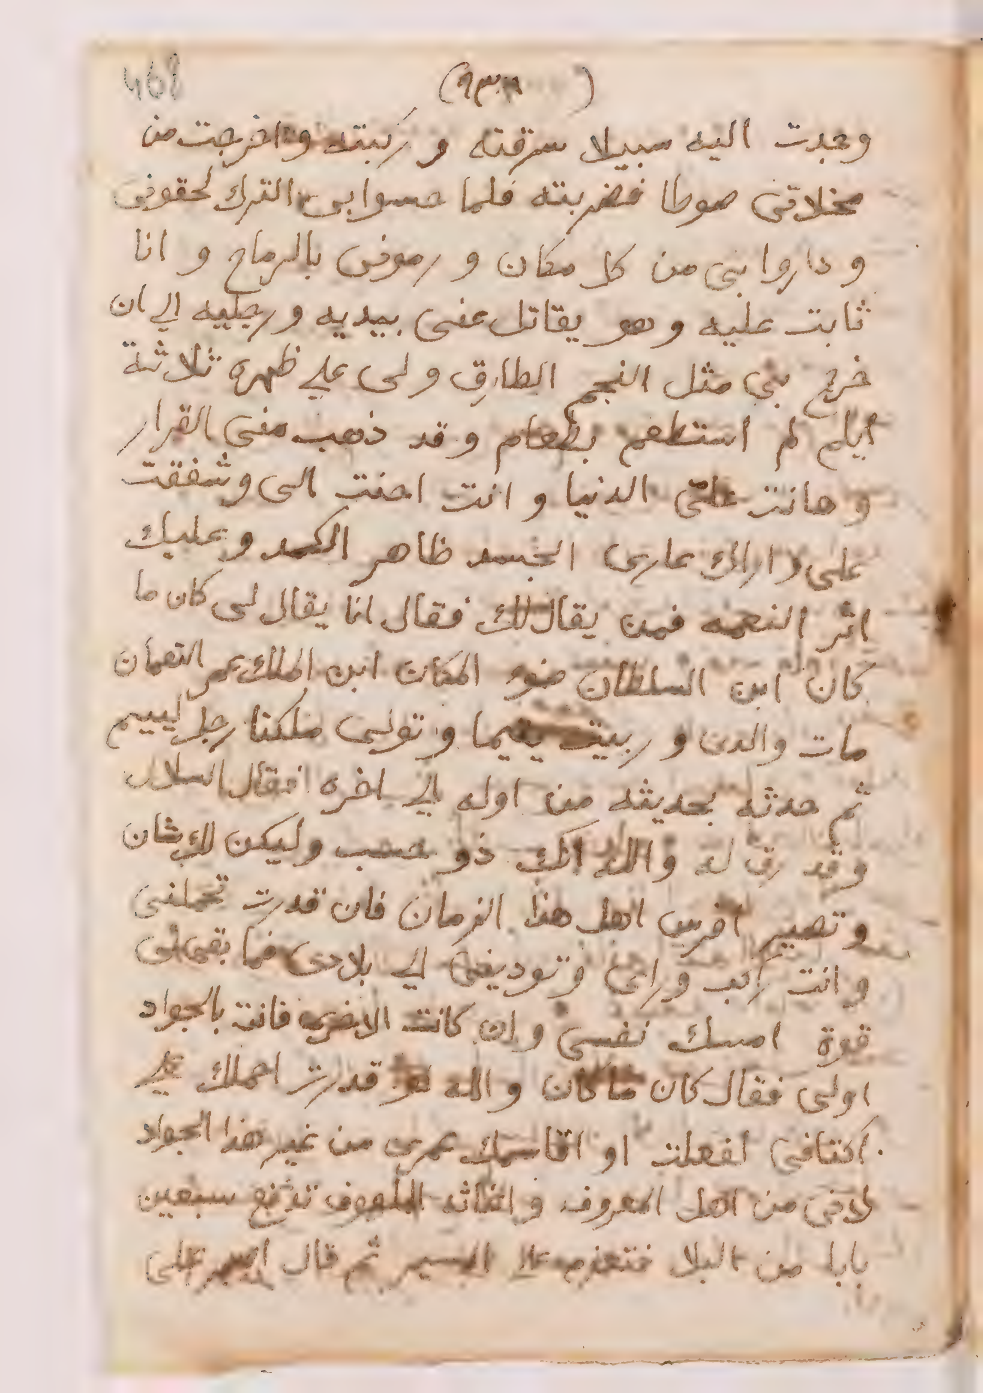 468
(٩٣٨)
وجدت اليه سبيلا سرقته و ركبته واخرجت من
مخلاتي صوطا فضربته فلما حسوا بي الترك لحقوني
و داروا بي من كل مكان و رموني بالرماح و انا
ثابت عليه و هو يقاتل عني بيديه و رجليه الي ان
خرج بي مثل النجم الطارق و لي علي ظهره ثلاثة
ايام لم استطعم بطعام و قد ذهب مني القرار
و هانت علي الدنيا و انت احنت الي و شفقت
علي و اراك عاري الجسد ظاهر الكمد و عليك
اثر النعمه فمن يقال لك فقال انا يقال لي كان ما
كان ابن السلطان ضوء المكان ابن الملك عمر النعمان
مات والدي و ربيت يتيما و تولي ملكنا رجل لييم
ثم حدثه بحديثه من اوله الي اخره فقال السلال
وقد رق له والله انك ذو حسب وليكن لك شان
و تصير افرس اهل هذا الزمان فان قدرت تحملني
و انت راكب وراي و توديني الي بلادي فما بقي لي
قوة امسك نفسي و ان كانت الاخري فانت بالجواد
اولي فقال كان ماكان و الله لو قدرت احملك علي
اكتافي لفعلت او اقاسمك عمري من غير هذا الجواد
لاني من اهل المعروف و اغاثة الملهوف تدفع سبعين
بابا من البلا فتعزم علا المسير ثم قال اصبر علي